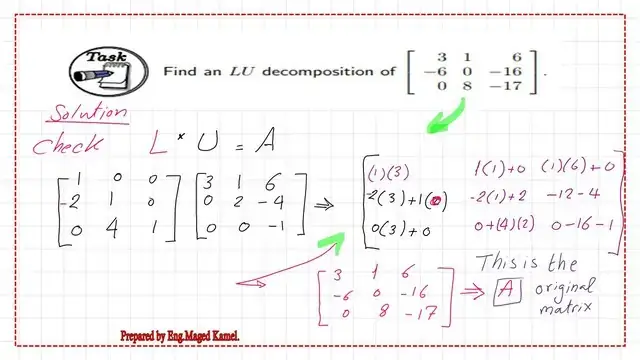 Task
Find an LU decomposition of [ 3 1 6
-6 0 -16
0 8 -17 ].
Solution
Check L * U = A
[ 1 0 0
-2 1 0
0 4 1 ] [ 3 1 6
0 2 -4
0 0 -1 ] ⇒ [ (1)(3) 1(1)+0 (1)(6)+0
-2(3)+1(0) -2(1)+2 -12-4
0(3)+0 0+(4)(2) 0-16-1 ]
[ 3 1 6
-6 0 -16
0 8 -17 ] ⇒ A
This is the
original
matrix
Prepared by Eng.Maged Kamel.